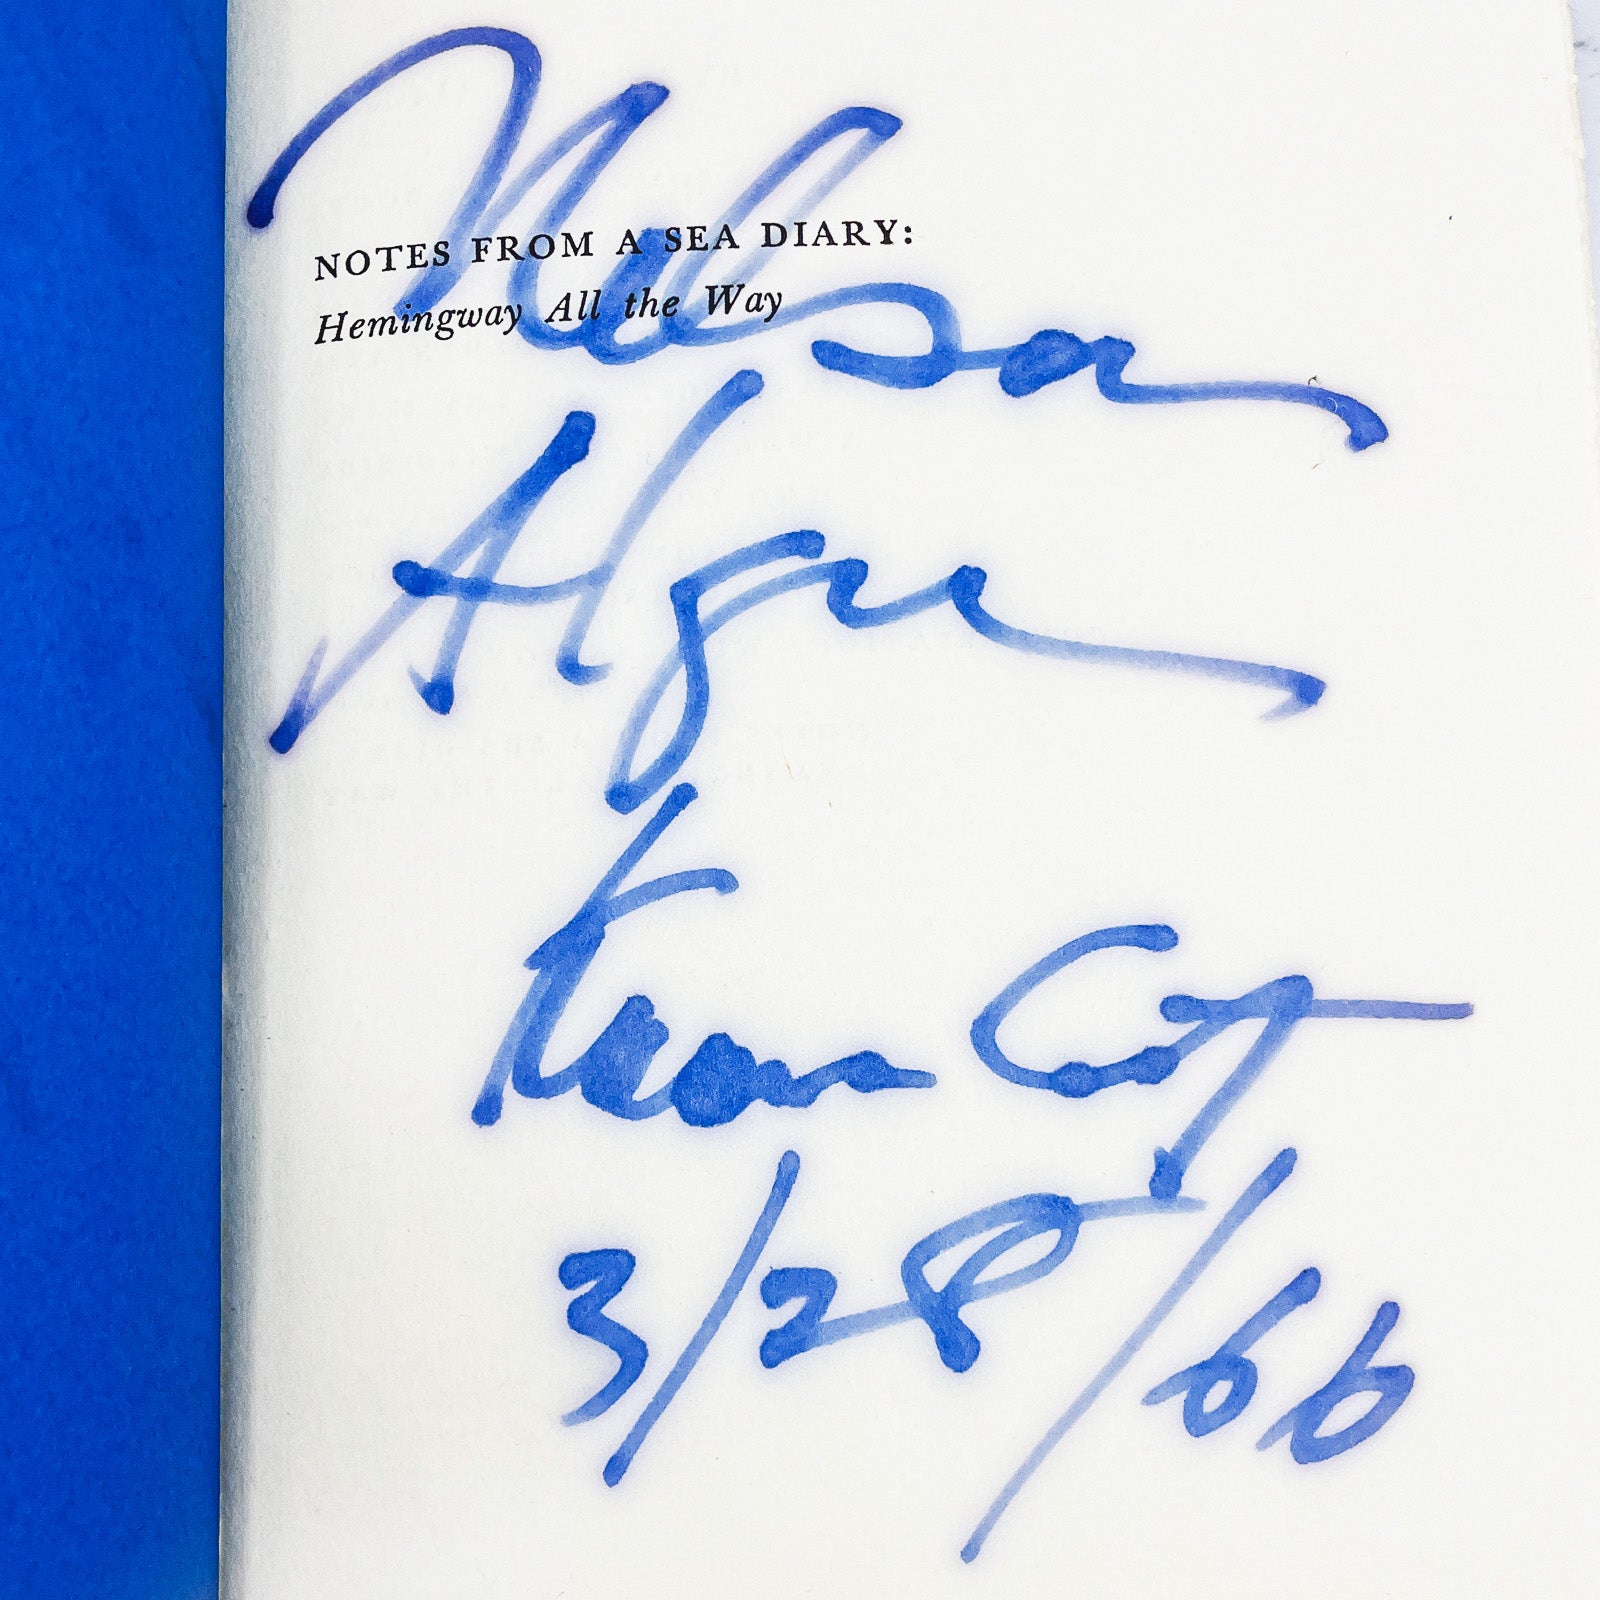 NOTES FROM A SEA DIARY:
Hemingway All the Way
Nelson
Algren
Kansas City
3/28/66